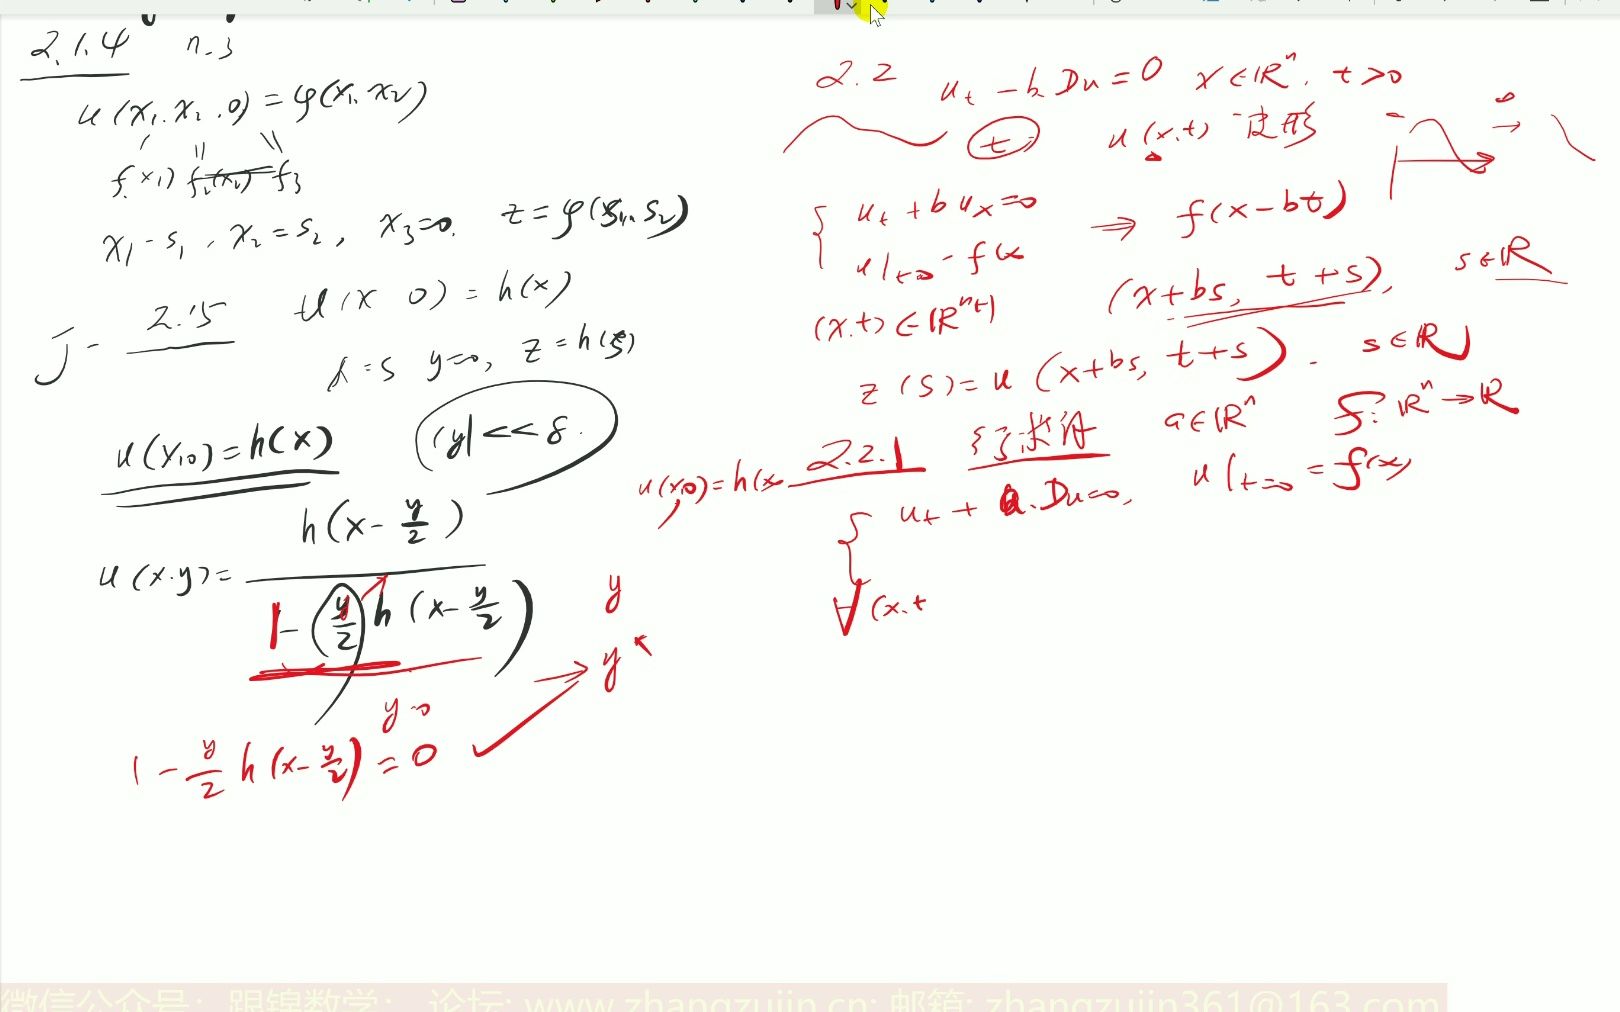 2.1.4 n=3
u(x₁,x₂,0)=φ(x₁,x₂)
f₁(x₁) f₂(x₂) f₃
x₁=s₁, x₂=s₂, x₃=0. z=φ(s₁,s₂)
2.1.5 u(x 0)=h(x)
J=
x=s y=0, z=h(s)
u(x,0)=h(x) |y|<<δ.
h(x-y/2)
u(x,y)=
1-(y/2)h(x-y/2)
y=0
1-y/2 h(x-y/2)=0
y
y*
2.2 u_t-b Du=0 x∈ℝⁿ, t>0
t u(x,t) 波形
u_t+bu_x=0
u|t=0=f(x ⇒ f(x-bt)
(x,t)∈ℝⁿ⁺¹ (x+bs, t+s), s∈ℝ
z(s)=u(x+bs, t+s). s∈ℝ
2.2.1 a∈ℝⁿ f:ℝⁿ→ℝ
u(x,0)=h(x
u_t+a.Du=0, u|t=0=f(x)
∀(x,t
微信公众号：跟锦数学； 论坛: www.zhangzujin.cn; 邮箱: zhangzujin361@163.com